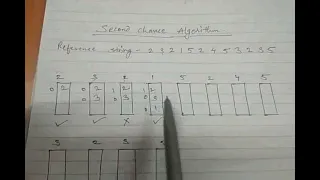 Second Chance Algorithm
Reference string - 2 3 2 1 5 2 4 5 3 2 3 5
2 3 2 1 5 2 4 5
0 2 0 2 1 2 1 2
0 3 0 3 0 3
0 1
✓ ✓ x ✓
3 2 3 5